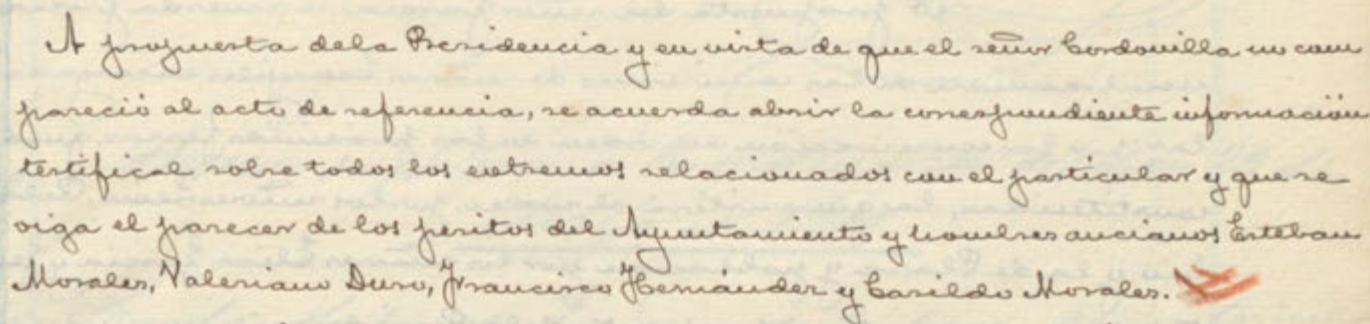 A propuesta dela Presidencia y en vista de que el señor Cordovilla no com
pareció al acto de referencia, se acuerda abrir la correspondiente información
testifical sobre todos los extremos relacionados con el particular y que se
oiga el parecer de los peritos del Ayuntamiento y hombres ancianos Esteban
Morales, Valeriano Duro, Francisco Hernández y Casildo Morales.